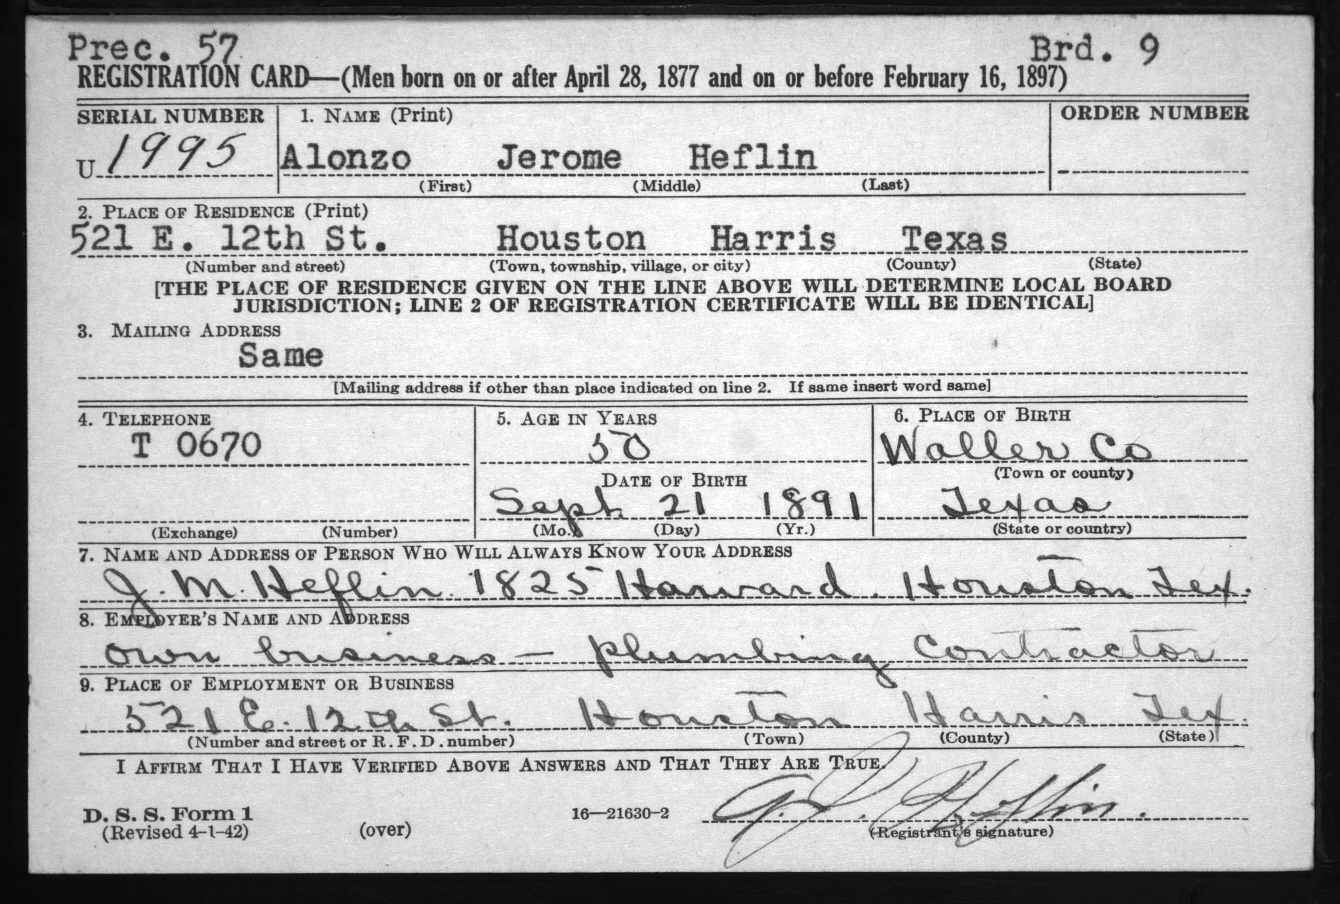 Prec. 57 Brd. 9
REGISTRATION CARD—(Men born on or after April 28, 1877 and on or before February 16, 1897)
SERIAL NUMBER 1. NAME (Print) ORDER NUMBER
U 1995 Alonzo Jerome Heflin
(First) (Middle) (Last)
2. PLACE OF RESIDENCE (Print)
521 E. 12th St. Houston Harris Texas
(Number and street) (Town, township, village, or city) (County) (State)
[THE PLACE OF RESIDENCE GIVEN ON THE LINE ABOVE WILL DETERMINE LOCAL BOARD
JURISDICTION; LINE 2 OF REGISTRATION CERTIFICATE WILL BE IDENTICAL]
3. MAILING ADDRESS
Same
[Mailing address if other than place indicated on line 2. If same insert word same]
4. TELEPHONE 5. AGE IN YEARS 6. PLACE OF BIRTH
T 0670 50 Waller Co
(Town or county)
DATE OF BIRTH
Sept. 21 1891 Texas
(Exchange) (Number) (Mo.) (Day) (Yr.) (State or country)
7. NAME AND ADDRESS OF PERSON WHO WILL ALWAYS KNOW YOUR ADDRESS
J. M. Heflin. 1825 Harvard. Houston Tex.
8. EMPLOYER'S NAME AND ADDRESS
own business — plumbing Contractor
9. PLACE OF EMPLOYMENT OR BUSINESS
521 E. 12th St. Houston Harris Tex.
(Number and street or R. F. D. number) (Town) (County) (State)
I AFFIRM THAT I HAVE VERIFIED ABOVE ANSWERS AND THAT THEY ARE TRUE.
D. S. S. Form 1 16—21630-2 A. J. Heflin.
(Revised 4-1-42) (over) (Registrant's signature)